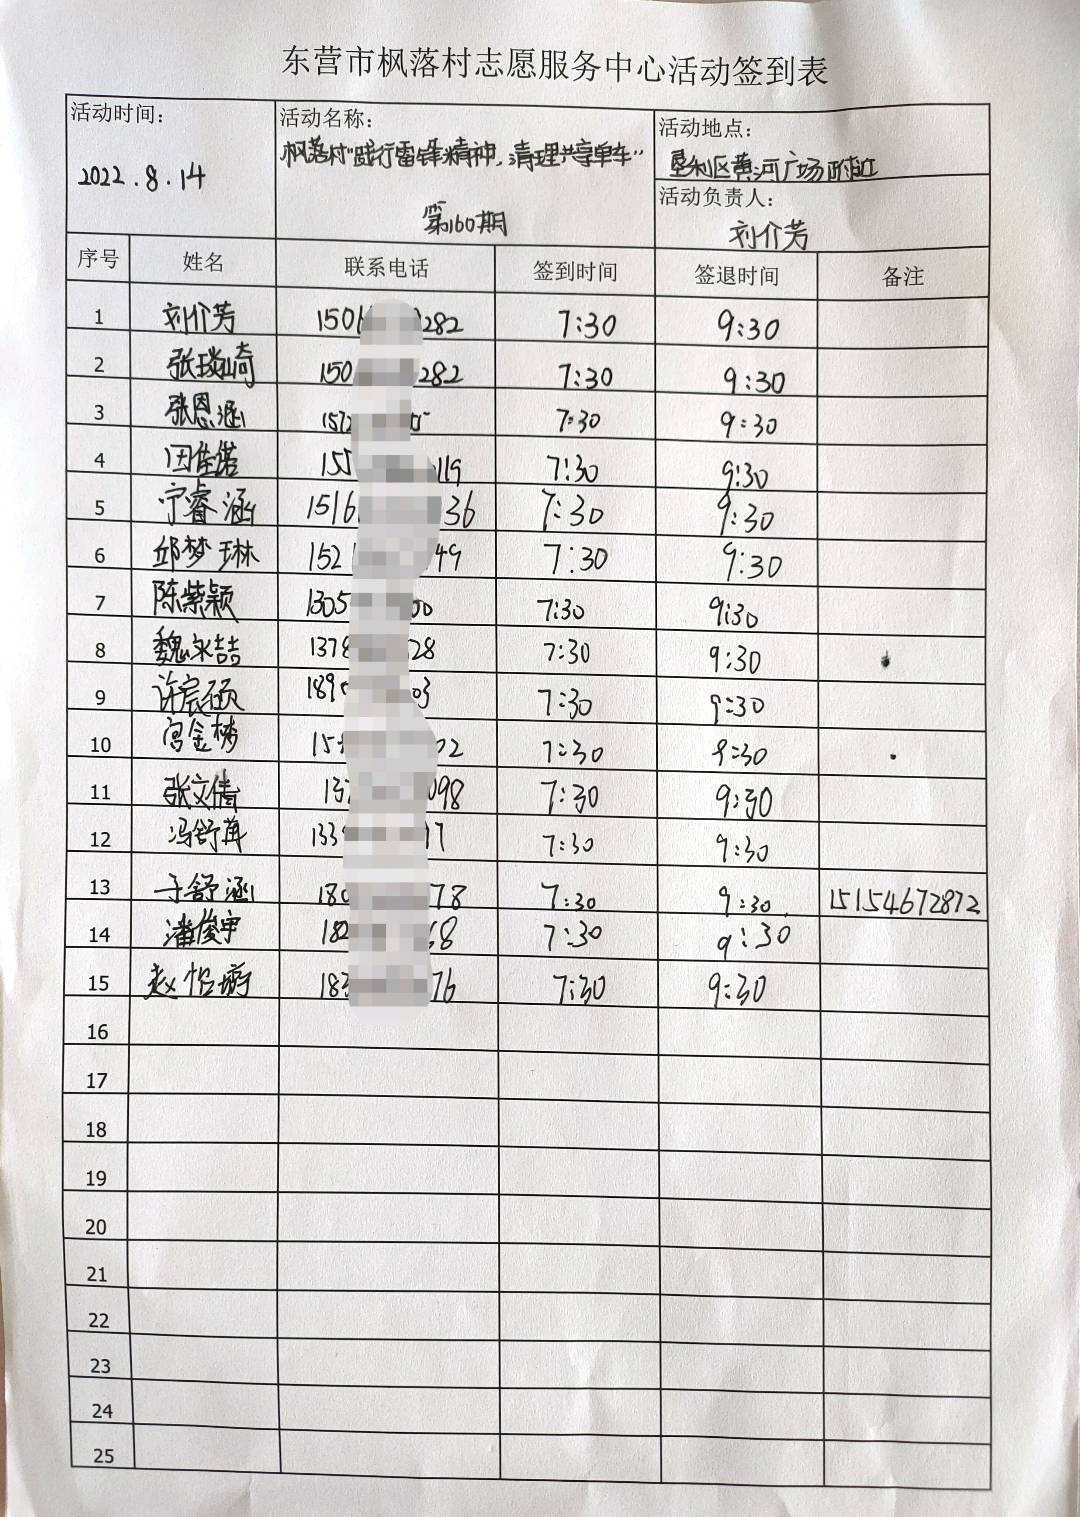 东营市枫落村志愿服务中心活动签到表
活动时间：
2022.8.14
活动名称：
枫落村“践行雷锋精神，清理共享单车”
第160期
活动地点：
垦利区黄河广场附近
活动负责人：
刘介芳
序号 姓名 联系电话 签到时间 签退时间 备注
1 刘介芳 150 282 7:30 9:30
2 张琰崎 150 282 7:30 9:30
3 张恩涵 157 7:30 9:30
4 田佳诺 155 119 7:30 9:30
5 宁睿涵 1516 36 7:30 9:30
6 邱梦琳 152 49 7:30 9:30
7 陈紫颖 1305 00 7:30 9:30
8 魏永喆 1378 28 7:30 9:30
9 许宸硕 189 03 7:30 9:30
10 宫金梦 15 02 7:30 9:30
11 张文倩 137 098 7:30 9:30
12 冯舒苒 133 7 7:30 9:30
13 于舒涵 180 78 7:30 9:30 15154672872
14 潘俊宇 182 68 7:30 9:30
15 赵怡璇 183 76 7:30 9:30
16
17
18
19
20
21
22
23
24
25